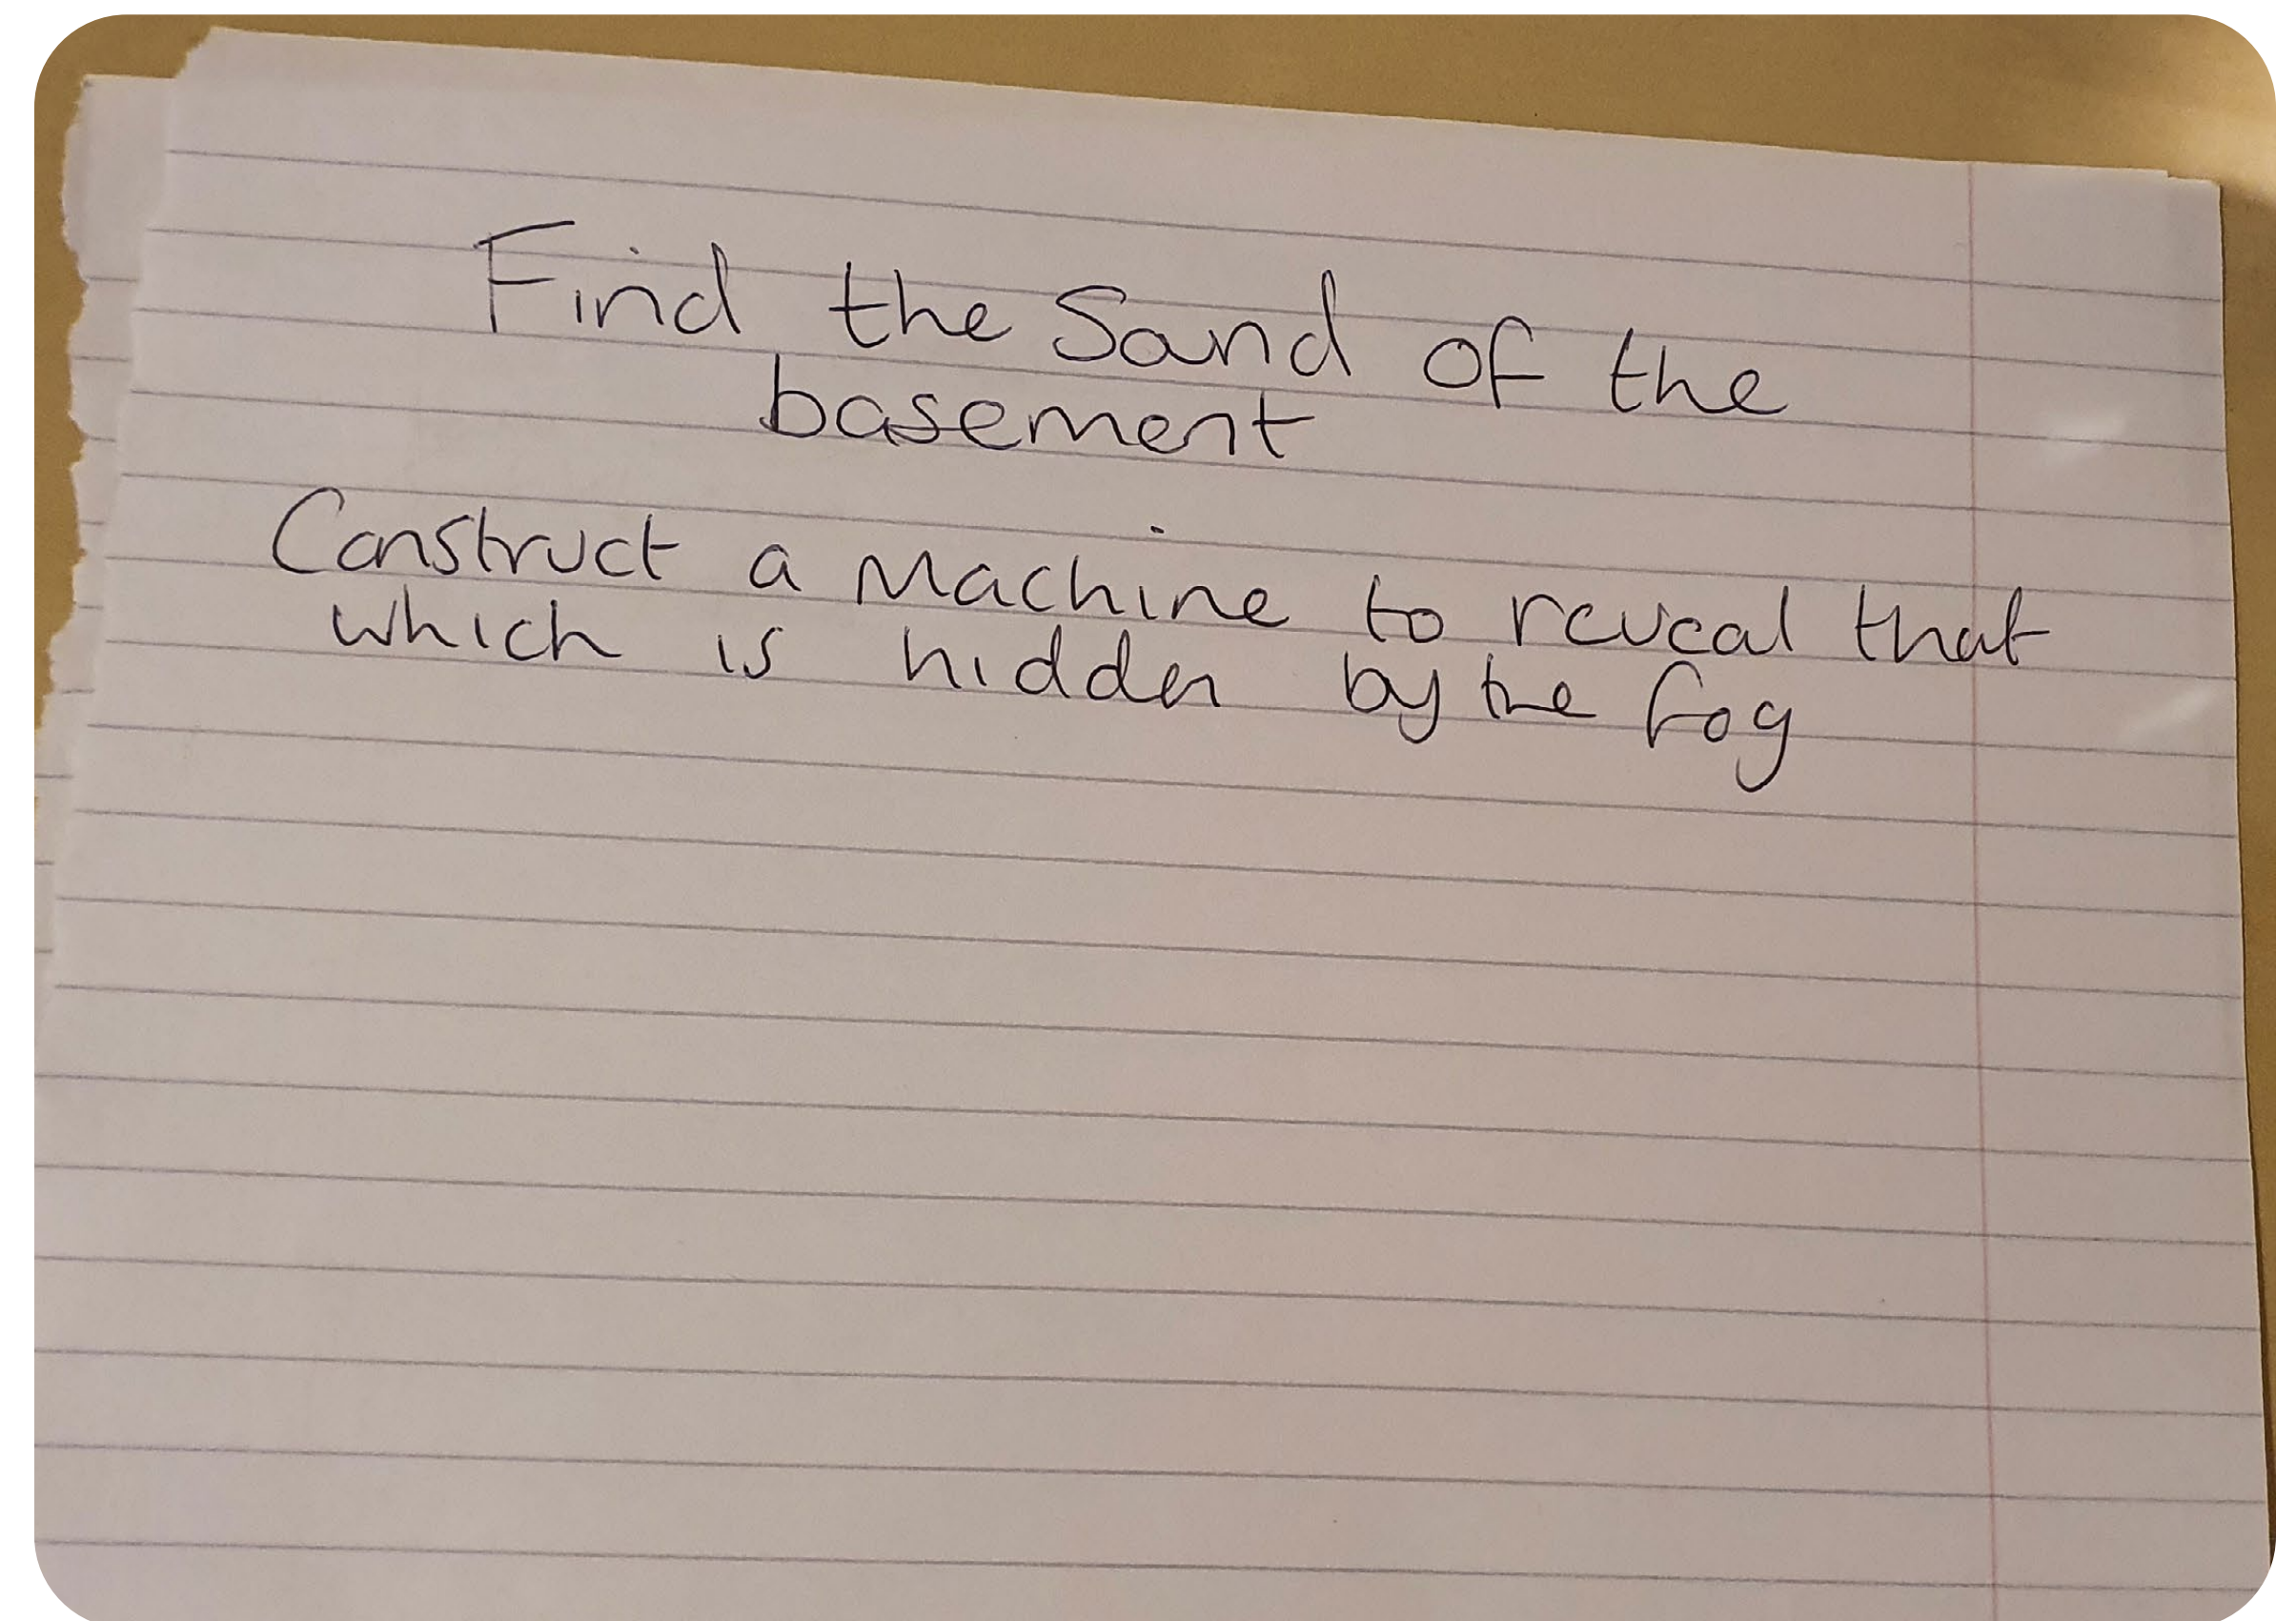 Find the Sand of the
basement
Construct a Machine to reveal that
which is hidden by the fog